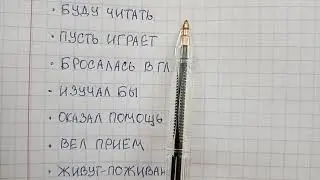 · БУДУ ЧИТАТЬ
· ПУСТЬ ИГРАЕТ
· БРОСАЛАСЬ В ГЛ
· ИЗУЧАЛ БЫ
· ОКАЗАЛ ПОМОЩЬ
· ВЕЛ ПРИЕМ
· ЖИВУТ-ПОЖИВАЮ